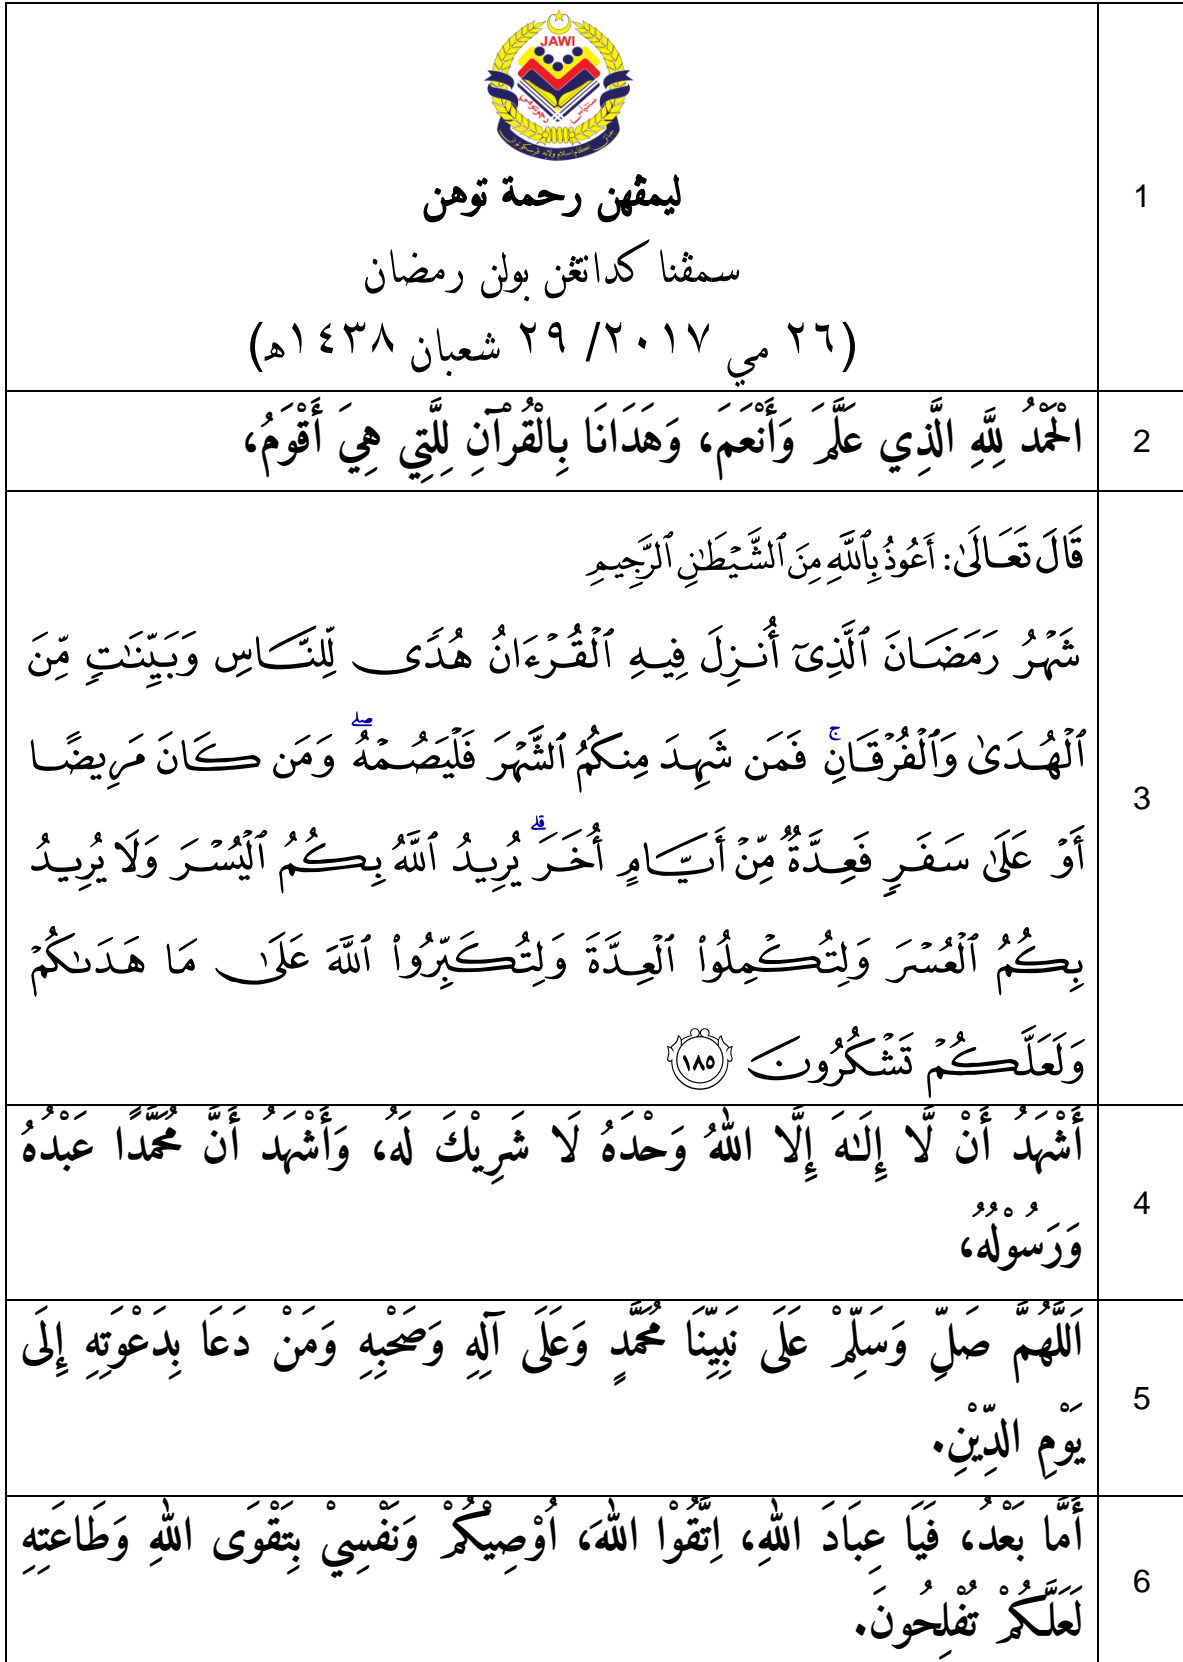 JAWI
ليمڤهن رحمة توهن
سمڤنا كداتڠن بولن رمضان
(٢٦ مي ٢٠١٧/ ٢٩ شعبان ١٤٣٨هـ)
1
الْحَمْدُ لِلَّهِ الَّذِي عَلَّمَ وَأَنْعَمَ، وَهَدَانَا بِالْقُرْآنِ لِلَّتِي هِيَ أَقْوَمُ،
2
قَالَ تَعَالَىٰ: أَعُوذُ بِٱللَّهِ مِنَ ٱلشَّيْطَٰنِ ٱلرَّجِيمِ
شَهْرُ رَمَضَانَ ٱلَّذِىٓ أُنزِلَ فِيهِ ٱلْقُرْءَانُ هُدًى لِّلنَّاسِ وَبَيِّنَٰتٍ مِّنَ
ٱلْهُدَىٰ وَٱلْفُرْقَانِ ۚ فَمَن شَهِدَ مِنكُمُ ٱلشَّهْرَ فَلْيَصُمْهُ ۖ وَمَن كَانَ مَرِيضًا
أَوْ عَلَىٰ سَفَرٍ فَعِدَّةٌ مِّنْ أَيَّامٍ أُخَرَ ۗ يُرِيدُ ٱللَّهُ بِكُمُ ٱلْيُسْرَ وَلَا يُرِيدُ
بِكُمُ ٱلْعُسْرَ وَلِتُكْمِلُوا۟ ٱلْعِدَّةَ وَلِتُكَبِّرُوا۟ ٱللَّهَ عَلَىٰ مَا هَدَىٰكُمْ
وَلَعَلَّكُمْ تَشْكُرُونَ ١٨٥
3
أَشْهَدُ أَنْ لَّا إِلَـٰهَ إِلَّا اللهُ وَحْدَهُ لَا شَرِيْكَ لَهُ، وَأَشْهَدُ أَنَّ مُحَمَّدًا عَبْدُهُ
وَرَسُوْلُهُ،
4
اَللَّهُمَّ صَلِّ وَسَلِّمْ عَلَى نَبِيِّنَا مُحَمَّدٍ وَعَلَى آلِهِ وَصَحْبِهِ وَمَنْ دَعَا بِدَعْوَتِهِ إِلَى
يَوْمِ الدِّيْنِ.
5
أَمَّا بَعْدُ، فَيَا عِبَادَ اللهِ، اِتَّقُوْا اللهَ، أُوْصِيْكُمْ وَنَفْسِيْ بِتَقْوَى اللهِ وَطَاعَتِهِ
لَعَلَّكُمْ تُفْلِحُونَ.
6